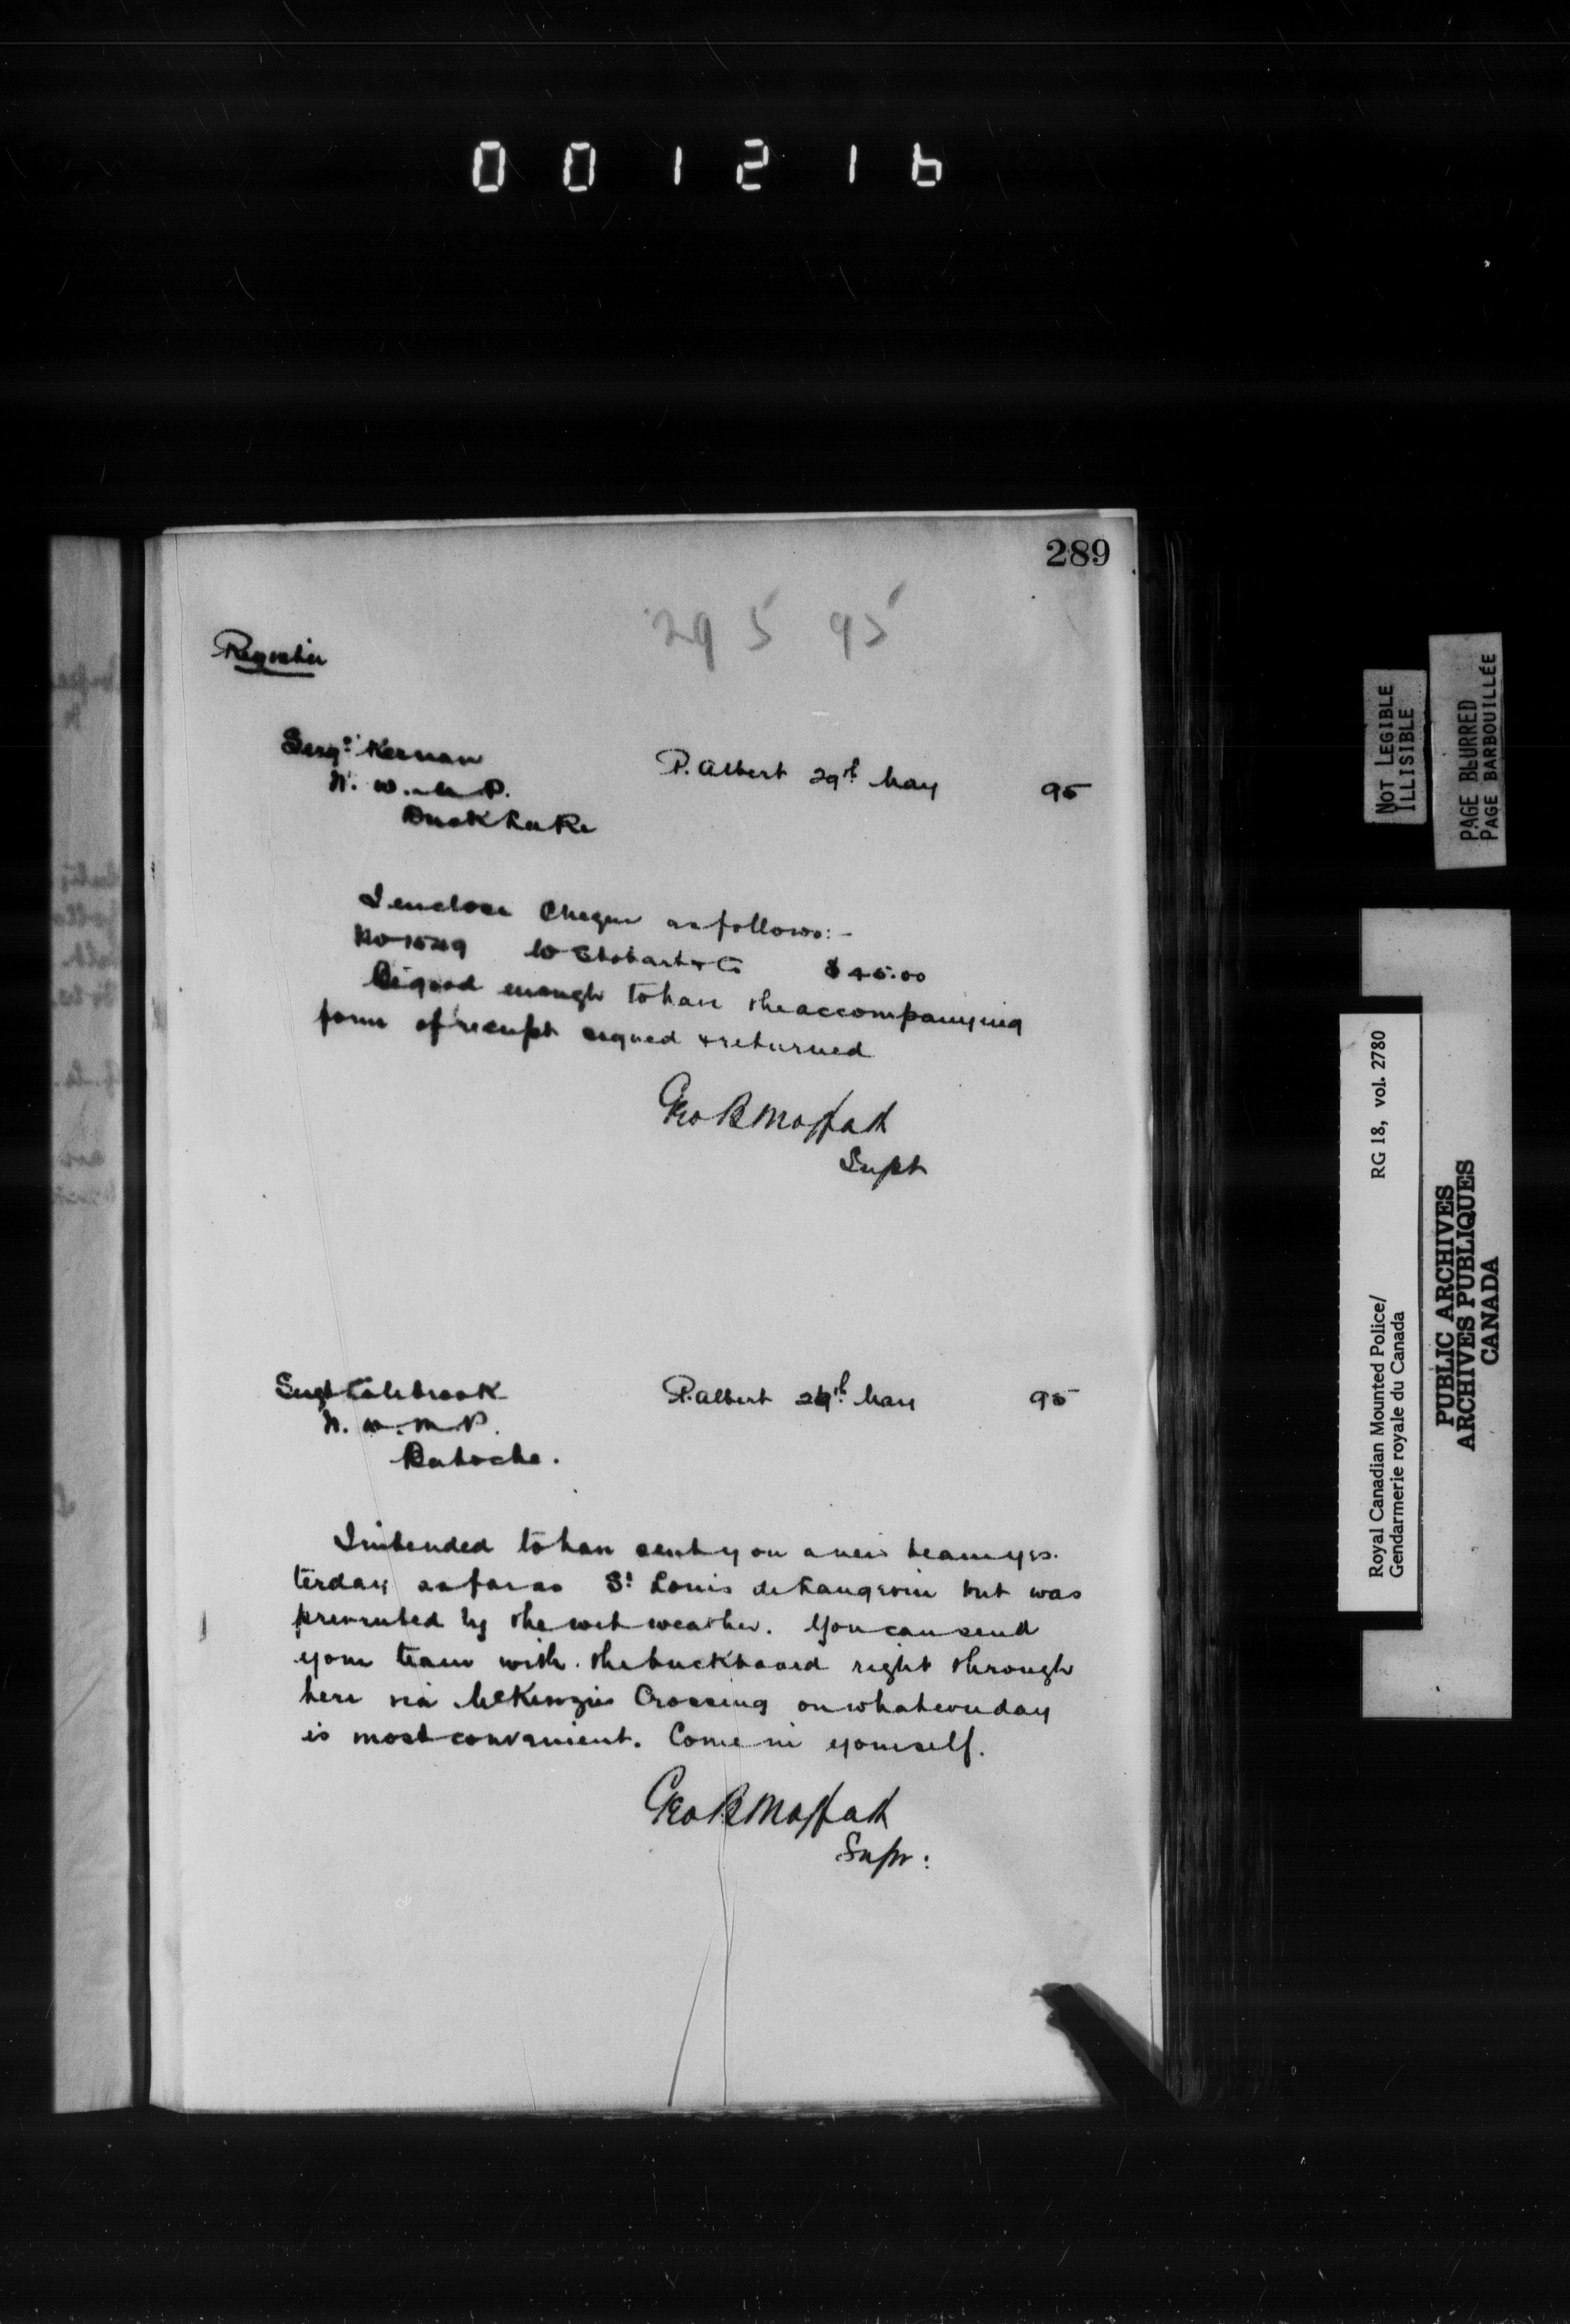 001216
289
29 5 95
Register
Sergt Kernan
P. Albert 29th May 95
N. W. M. P.
Duck Lake
I enclose Cheque as follows:-
No 1549 to Stobart & Co $45.00
Be good enough to have the accompanying
form of receipt signed & returned
Geo B Moffatt
Supt
Sergt Colebrook
P. Albert 29th May 95
N. W. M. P.
Batoche.
I intended to have sent you a new team yes-
terday as far as St Louis de Langevin but was
prevented by the wet weather. You can send
your team with the buckboard right through
here via McKenzies Crossing on whatever day
is most convenient. Come in yourself.
Geo B Moffatt
Supt:
NOT LEGIBLE
ILLISIBLE
PAGE BLURRED
PAGE BARBOUILLÉE
Royal Canadian Mounted Police/ RG 18, vol. 2780
Gendarmerie royale du Canada
PUBLIC ARCHIVES
ARCHIVES PUBLIQUES
CANADA